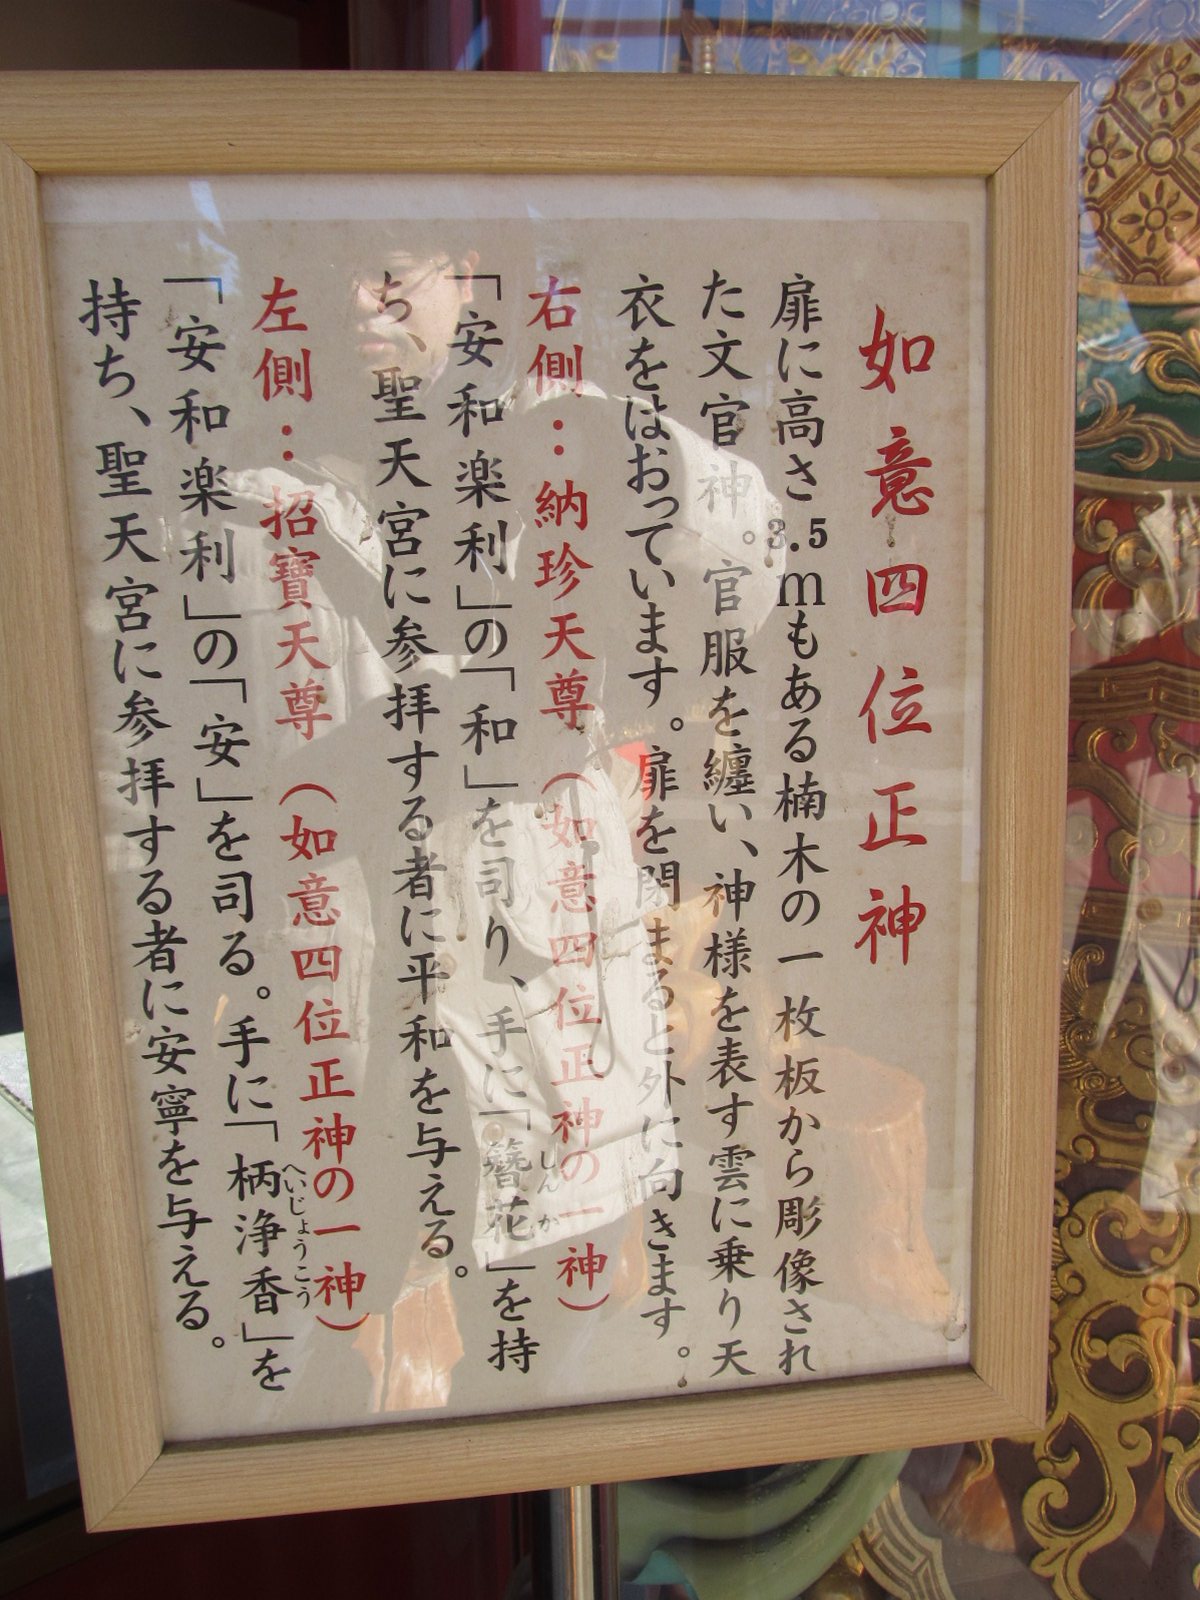 如意四位正神
扉に高さ3.5mもある楠木の一枚板から彫像され
た文官神。官服を纏い、神様を表す雲に乗り天
衣をはおっています。扉を閉まると外に向きます。
右側：納珍天尊（如意四位正神の一神）
「安和楽利」の「和」を司り、手に「簪花」を持
しんか
ち、聖天宮に参拝する者に平和を与える。
左側：招寶天尊（如意四位正神の一神）
「安和楽利」の「安」を司る。手に「柄浄香」を
へいじょうこう
持ち、聖天宮に参拝する者に安寧を与える。